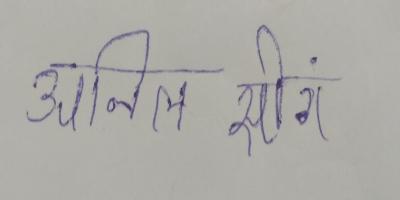 अनिल सीगं